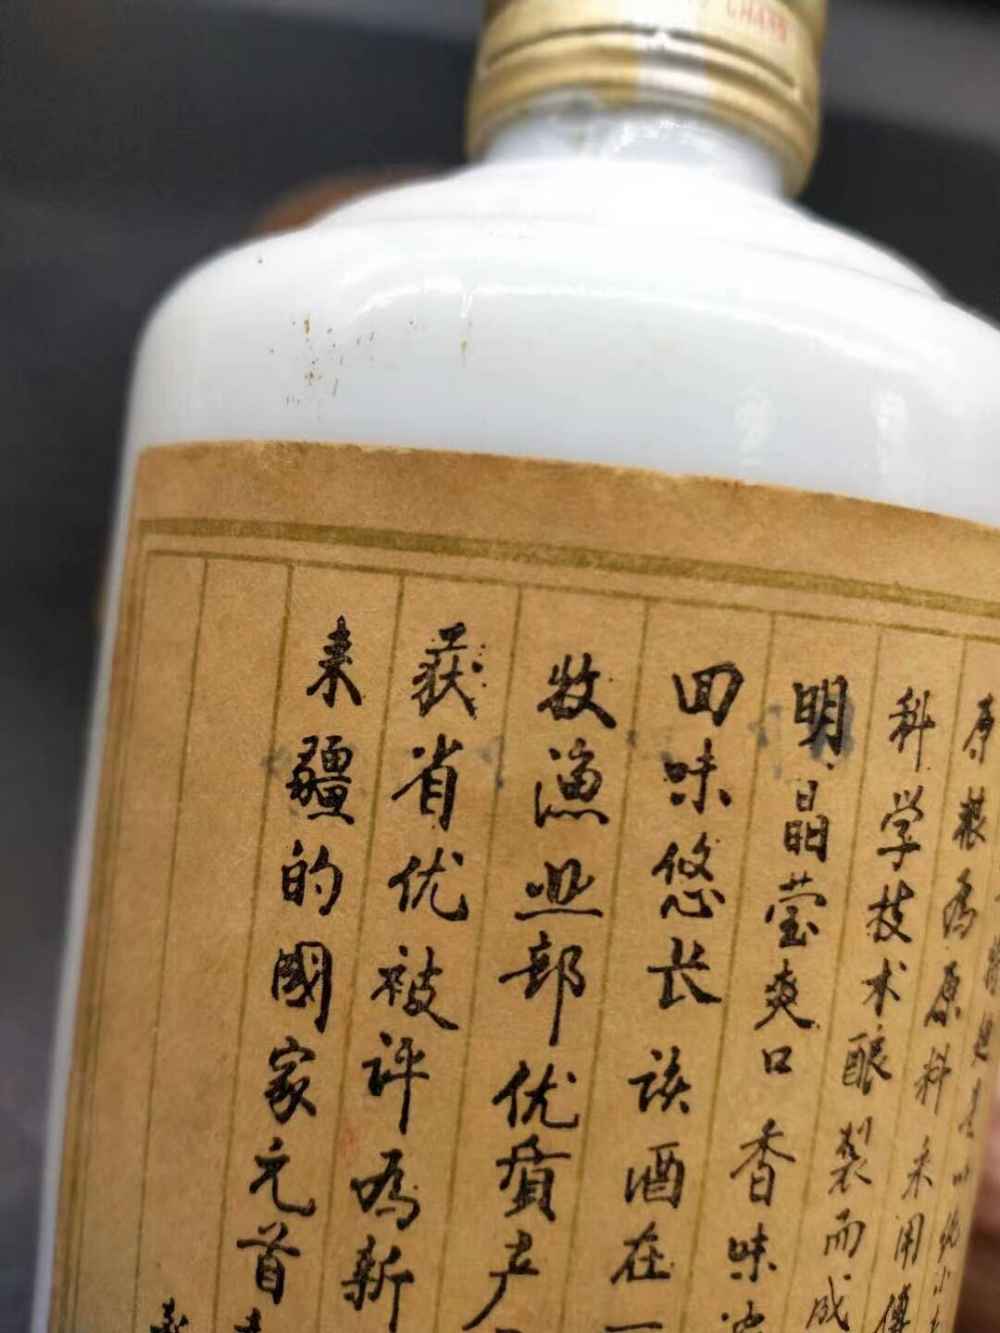 粮為原料采用傳
科学技术酿製而成
明晶莹爽口香味
回味悠长该酒在
牧渔业部优質产
获省优被评為新
来疆的國家元首